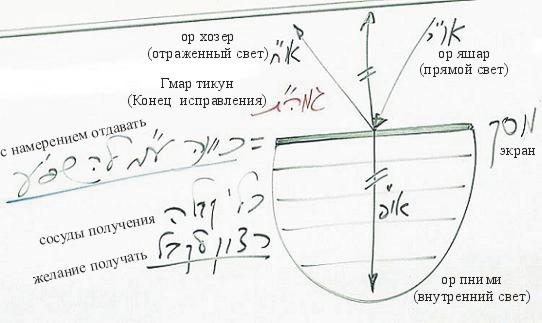 ор хозер
(отраженный свет)
או"ח
או"י
ор яшар
(прямой свет)
Гмар тикун
(Конец исправления)
גמה"ת
מסך
экран
с намерением отдавать
= כוונה ע"מ להשפיע
או"פ
сосуды получения
כלי קבלה
желание получать
רצון לקבל
ор пними
(внутренний свет)